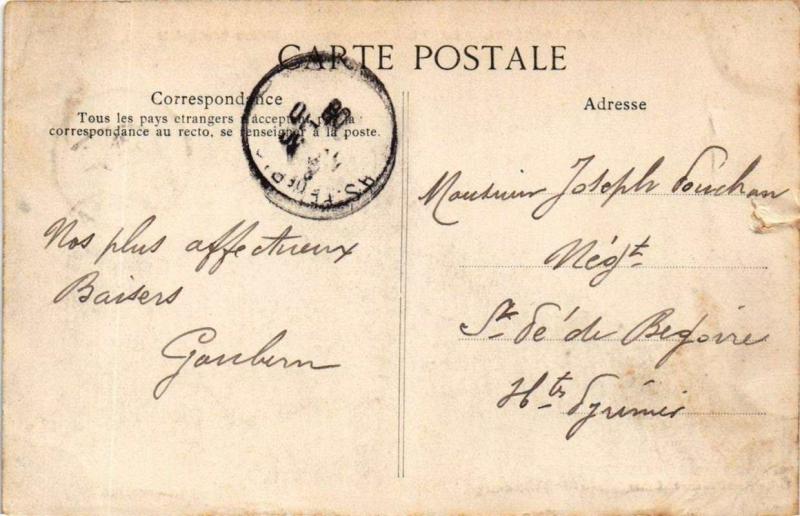 CARTE POSTALE
Correspondance
Tous les pays etrangers n'acceptent pas la
correspondance au recto, se renseigner à la poste.
Adresse
Nos plus affectueux
Baisers
Monsieur Joseph
Nég.t
St Pé de Bigorre
Htes Pyrénées